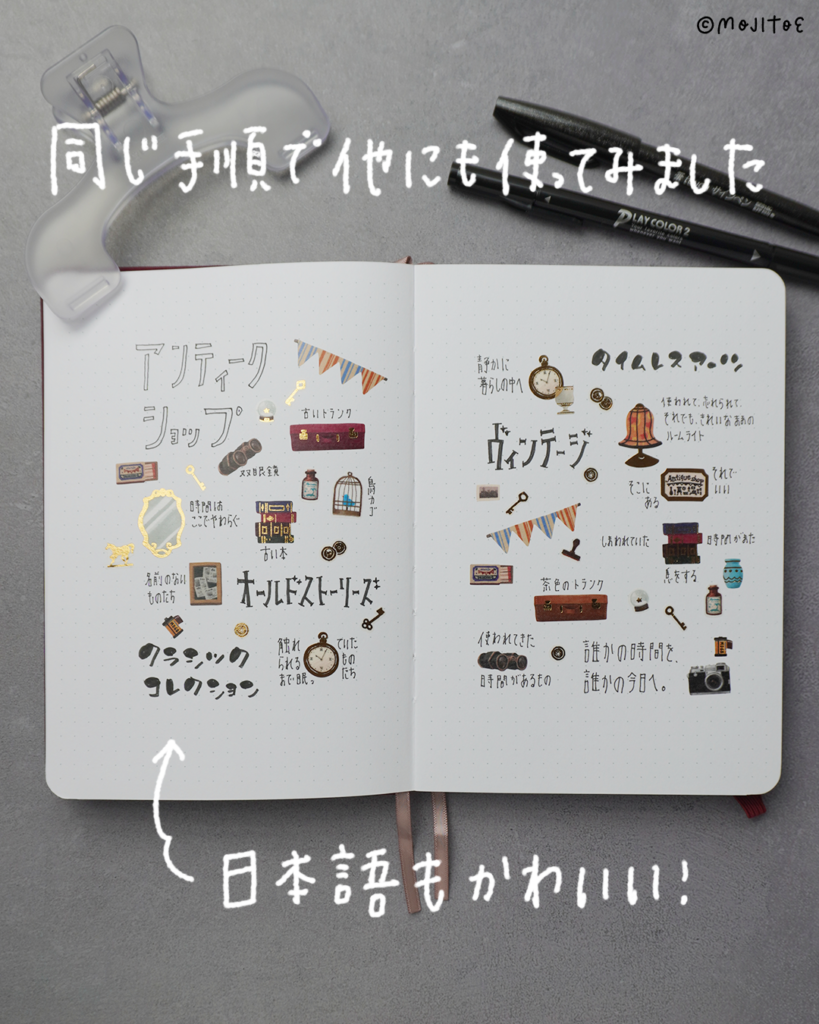 ©MOJITOE
同じ手順で他にも使ってみました
PLAY COLOR 2
アンティーク
ショップ
古いトランク
双眼鏡
鳥カゴ
時間は
ここでやわらぐ
古い本
名前のない
ものたち
オールドストーリーズ
クラシック
コレクション
触れ
られる
まで眠っ
ていた
もの
たち
静かに
暮らしの中へ
タイムレスアーツ
使われて、売れられて、
それでも、きれいなままの
ルームライト
ヴィンテージ
Antique shop
そこに
ある
それで
いい
しまわれていた
時間がまた
息をする
茶色のトランク
使われてきた
時間があるもの
誰かの時間を、
誰かの今日へ。
日本語もかわいい!